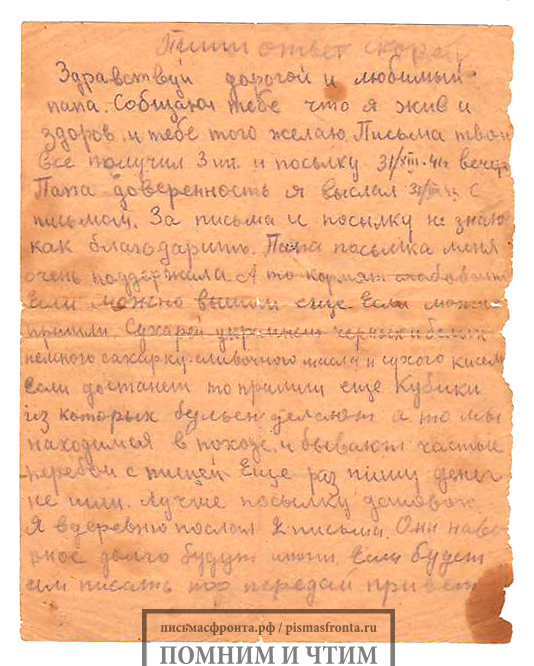 Пиши ответ скорей
Здравствуй дорогой и любимый
папа. Собщаю тебе что я жив и
здоров и тебе того желаю. Письма твои
все получил 3 шт. и посылку 31/XIII-41г вечер
Папа доверенность я выслал 31/ с
письмом. За письма и посылку не знаю
как благодарить. Папа посылка меня
очень поддержала А то кормят слабоват
Если можно вышли еще Если можн
пришли. Сухарей черных и белых
немного сахарку сливочного масла и сухого кисел
Если достанет то пришли еще Кубики
из которых бульен делают а то мы
находимся в походе и бывают частые
перебои с пищей Еще раз пишу денег
не шли. Лучше посылку
Я в деревню послал 2 письма. Они навер
ное долго будут итти. Если будет
им писать то передай привет
письмасфронта.рф / pismasfronta.ru
ПОМНИМ И ЧТИМ